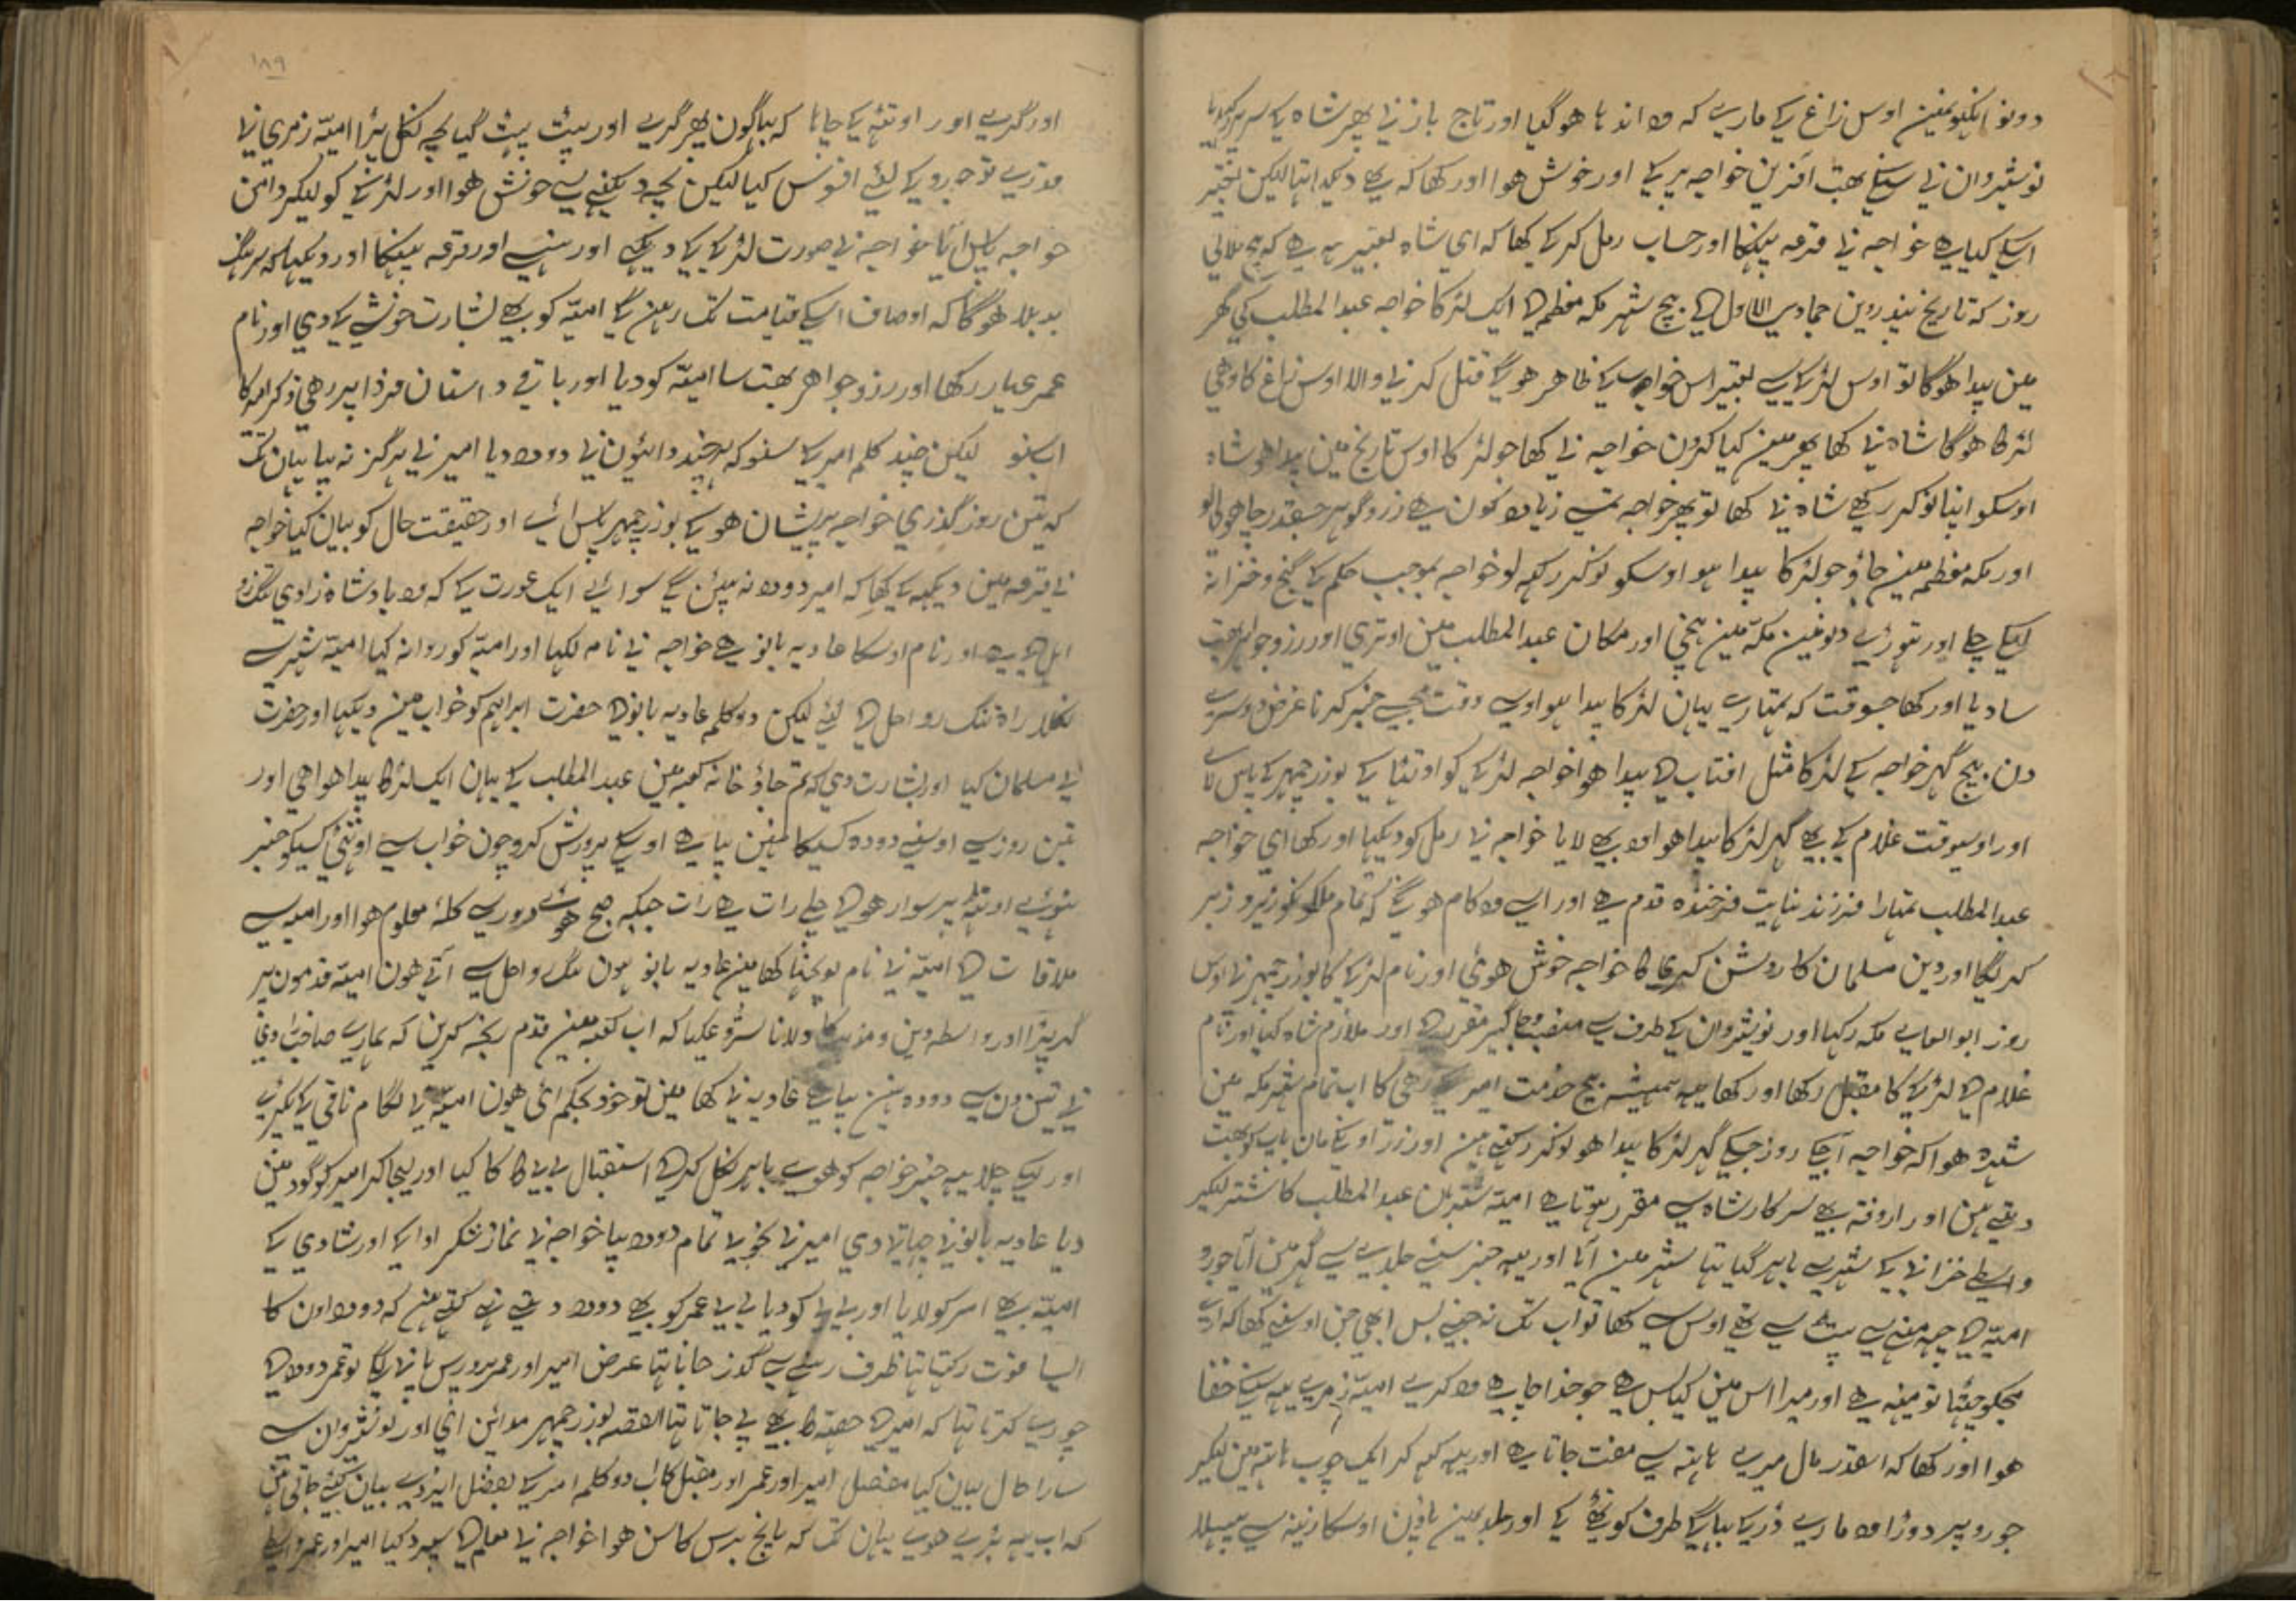 دونو انکہونمین اوس زاغ کے مارے کہ وہ اندہا هوگیا اور تاج باز نے پهر شاہ کے سر پر رکهدیا
نوشیروان نے سنکے بهت آفرین خواجہ پر کے اور خوش هوا اور کها کہ یهے دیکها تها لیکن تعبیر
اسکے کیا هے خواجہ نے قرعہ پهینکا اور حساب رمل کر کے کها کہ ای شاہ تعبیر یہ هے کہ بیچ فلانی
روز کہ تاریخ پندروین جمادی الاول کے بیچ شہر مکہ معظمہ کے ایک لڑکا خواجہ عبدالمطلب کی گهر
مین پیدا هوگا تو اوس لڑکے سے تعبیر اس خواب کے ظاهر هوگے قتل کرنے والا اوس زاغ کا وهی
لڑکا هوگا شاہ نے کها پهر مین کیا کرون خواجہ نے کها جو لڑکا اوس تاریخ مین پیدا هو شاہ
اوسکو اپنا نوکر رکهے شاہ نے کها تو پهر خواجہ تمسے زیادہ کون هے زر و گوهر جسقدر چاهو لو
اور مکہ معظمہ مین جاؤ جو لڑکا پیدا هو اوسکو نوکر رکهہ لو خواجہ بموجب حکم کے گنج و خزانہ
لیکے چلے اور تهوڑے دنونمین مکہ مین پہنچی اور مکان عبدالمطلب مین اوتری اور زر و جواهر بهت
سا دیا اور کها جسوقت کہ تمہارے یہان لڑکا پیدا هو اوسے وقت مجهے خبر کرنا غرض دوسرے
دن بیچ گهر خواجہ کے لڑکا مثل افتاب کے پیدا هوا خواجہ لڑکے کو اوٹها کے بوزرجمہر کے پاس لائے
اور اوسیوقت غلام کے بهے گهر لڑکا پیدا هوا وہ بهے لایا خواجہ نے رمل کو دیکها اور کها ای خواجہ
عبدالمطلب تمہارا فرزند نہایت فرخندہ قدم هے اور اسے وہ کام هونگے کہ تمام ملکونکو زیر و زبر
کریگا اور دین مسلمان کا روشن کریگا خواجہ خوش هوئی اور نام لڑکے کا بوزرجمہر نے اوس
روز ابوالعلے مکہ رکها اور نوشیروان کے طرف سے منصب و جاگیر مقرر کے اور ملازم شاہ کیا اور نام
غلام کے لڑکے کا مقبل رکها اور کها یہہ همیشہ بیچ خدمت امیر کے رهی کا اب تمام شهر مکہ مین
شهرہ هوا کہ خواجہ آجکے روز جسکے گهر لڑکا پیدا هو نوکر رکهتے هین اور زر اوسکے مان باپ کو بهت
دیتے هین اور اروقہ بهے سرکار شاہ سے مقرر هوتا هے امیہ شتربان عبدالمطلب کا شتر لیکر
واسطے خزانے کے شهر سے باهر گیا تها شهر مین آیا اور یہہ خبر سنے جلدے سے گهر مین آیا جورو
امیہ کے چهہ مهنے سے پیٹ سے تهے اوس سے کها تو اب تک نہ جنے بس ابهی جن اوسنے کها کہ ارے
مجکو چهٹا تو مهنہ هے اور میرا اس مین کیا بس هے جو خدا چاهے وہ کرے امیہ زمرے یہ سنکے خفا
هوا اور کها کہ اسقدر مال میرے هاتهہ سے مفت جاتا هے اور یہہ کهہ کر ایک چوب هاتهہ مین لیکر
جورو پر دوڑا وہ مارے ڈر کے بهاگے طرف کوٹهے کے اور جلدیمین پاؤن اوسکا زینہ سے پهسلا
۱۸۹
اور گرے اور اوٹهہ کے چاها کہ بهاگون پهر گرے اور پیٹ پهٹ گیا بچہ نکل پڑا امیہ زمری نے
قدرے تو جورو کے لئے افسوس کیا لیکن بچہ دیکهنے سے خوش هوا اور لڑکے کو لیکر دامن
خواجہ پاس لایا خواجہ نے صورت لڑکے کے دیکهے اور هنسے اور قرعہ پهینکا اور دیکها کہ سرهنگ
بدبلا هوگا کہ اوصاف اسکے قیامت تک رهین گے امیہ کو بهے بشارت خوشے کے دی اور نام
عمر عیار رکها اور زر و جواهر بهت سا امیہ کو دیا اور باقے داستان فردا پر رهی ذکر امیر کا
اب سنو لیکن چند کلمہ امیر کے سنو کہ هرچند دائیون نے دودہ دیا امیر نے هرگز نہ پیا یہان تک
کہ تین روز گذری خواجہ پریشان هو کے بوزرجمہر پاس اے اور حقیقت حال کو بیان کیا خواجہ
نے قرعہ مین دیکهہ کے کها کہ امیر دودہ نہ پیئن گے سوائے ایک عورت کے کہ وہ بادشاہ زادی تنگ رو
احل کے هے اور نام اوسکا عادیہ بانو هے خواجہ نے نامہ لکها اور امیہ کو روانہ کیا امیہ شهر سے
نکلا راہ تنگ رو احل کے لئے لیکن دو کلمہ عادیہ بانو کے حضرت ابراہیم کو خواب مین دیکها اور حضرت
نے مسلمان کیا اور بشارت دی کہ تم جاؤ خانہ کعبہ مین عبدالمطلب کے یہان ایک لڑکا پیدا هوا هی اور
تین روز سے اوسنے دودہ کسیکا نهین پیا هے اوسکے پرورش کرو چون خواب سے اوٹهی کسیکو خبر
نهوئے اونٹ پر سوار هو کے چلے رات هے رات جبکہ صبح هوئے دور سے کلہ معلوم هوا اور امیہ سے
ملاقات کے امیہ نے نام پوچها کها مین عادیہ بانو هون تنگ رواحل سے آتے هون امیہ قدمون پر
گر پڑا اور واسطہ دین و مذهب کا دلانا شروع کیا کہ اب کعبہ مین قدم رنجہ کرین کہ همارے صاحبزادی
نے تین دن سے دودہ نهین پیا هے عادیہ نے کها مین تو خود بحکم ائی هون امیہ نے لگام ناقے کے پکڑے
اور لیکے چلا یہہ خبر خواجہ کو هوے باهر نکل کر کے استقبال بے بے کا کیا اور لیجا کر امیر کو گود مین
دیا عادیہ بانو نے چهاتے لا دی امیر نے بخوبے تمام دودہ پیا خواجہ نے نماز شکر ادا کے اور شادی کے
امیہ بهے عمر کو لایا اور بے بے کو دیا بے بے عمر کو بهے دودہ دیتے تهے کهتے هین کہ دودہ اون کا
ایسا قوت رکهتا تها عرض امیر اور عمر پرورش پانے لگے تو عمر دودہ کے
چورے کرتا تها کہ امیر کے حصہ کا بهے پے جاتا تها القصہ بوزرجمہر مدائن ائی اور نوشیروان سے
سارا حال بیان کیا مفصل امیر اور عمر اور مقبل کا اب دو کلمہ امیر کے بفضل ایزدے بیان کئے جاتی هین
کہ اب یہہ بڑے هوے یہان تک کہ پانچ برس کا سن هوا خواجہ نے معلم کے سپرد کیا امیر اور عمر واسطے